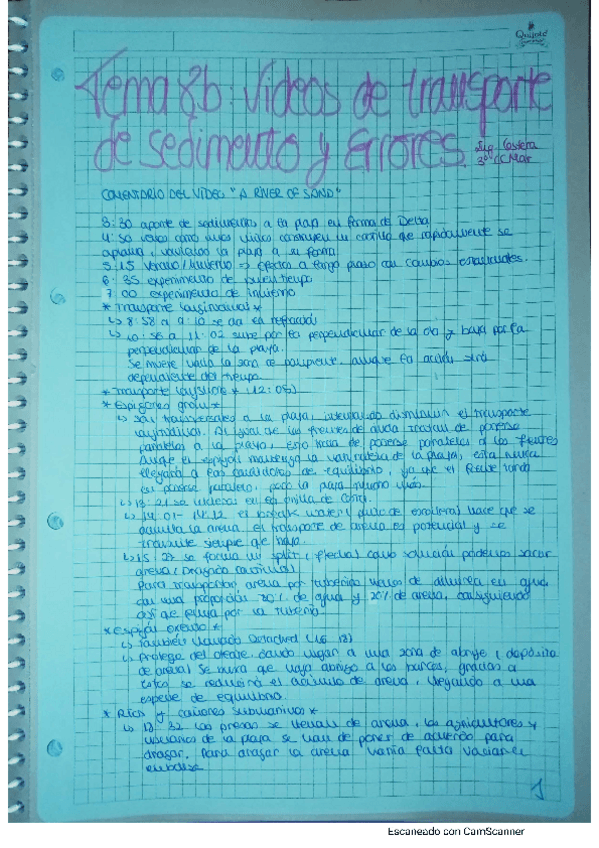 Tema 8b: Videos de transporte
de sedimento y Errores.
Ing. Costera
3º CC Mar
COMENTARIO DEL VIDEO "A RIVER OF SAND"
3:30 aporte de sedimentos a la playa en forma de Delta
como rápidamente se
aplana, la playa a su forma.
5:15 Verano/Invierno => efectos a largo plazo con cambios estacionales.
6:35 experimento de buen tiempo
7:00 experimento de invierno
* Transporte longitudinal *
↳ 8:58 a 9:10 se da la refracción
↳ 10:56 a 11:02 sube por la perpendicular de la ola y baja por la
perpendicular de la playa.
Se mueve hacia la zona de poniente, aunque la acción será
dependiente del tiempo.
* Transporte longshore * (12:05)
* Espigones groin *
↳ Son transversales a la playa, intentando disminuir el transporte
longitudinal. Al igual que los frentes de onda tratan de ponerse
paralelos a la playa, esta trata de ponerse paralela a los frentes
Aunque el espigón mantenga la de la playa, esta nunca
llegará a las condiciones de equilibrio, ya que el frente
ponerse paralelo, pero la playa mucho más.
↳ 13:21 se en la orilla de
↳ 14:01 - 14:12 el breakwater (dique de escollera) hace que se
acumule la arena. el transporte de arena es potencial y se
transmite siempre que haya.
↳ 15:23 se forma un split (flecha) como solución podemos sacar
arena (Dragado continuo)
Para transportar arena por tubería hemos de diluirla en agua
con una proporción 80% de agua y 20% de arena, consiguiendo
así que fluya por la tubería
* Espigón exento *
↳ También llamado Detached (16:18)
↳ Protege del oleaje, dando lugar a una zona de abrigo (depósito
de arena) Se busca que haya abrigo a los barcos, gracias a
estos se reducirá el acúmulo de arena, llegando a una
especie de equilibrio.
* Ríos y cañones submarinos *
↳ 18:32 Las presas se llenan de arena, los agricultores y
usuarios de la playa se han de poner de acuerdo para
dragar. Para dragar la arena haría falta vaciar el
embalse
1
Escaneado con CamScanner